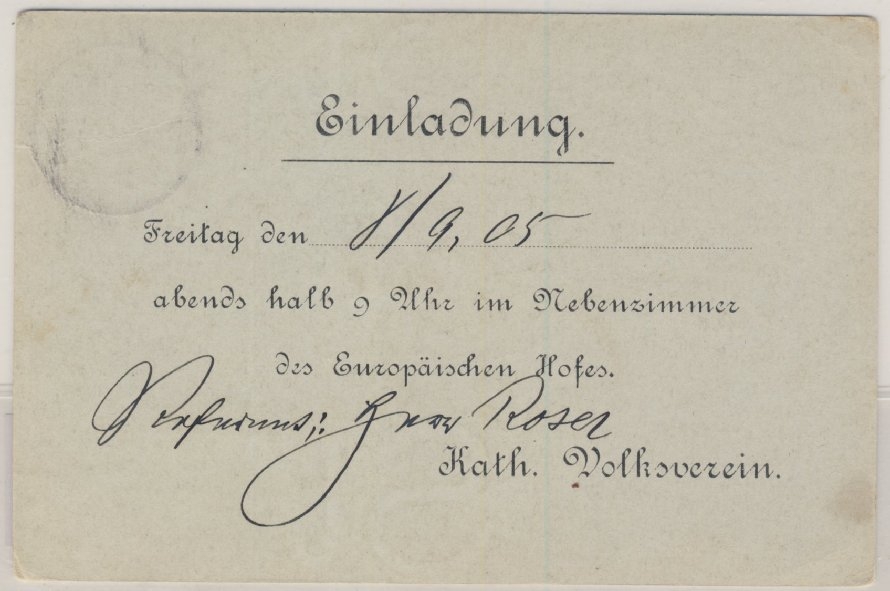 Einladung.
Freitag den 8/9, 05
abends halb 9 Uhr im Nebenzimmer
des Europäischen Hofes.
Referent: Herr Roser
Kath. Volksverein.